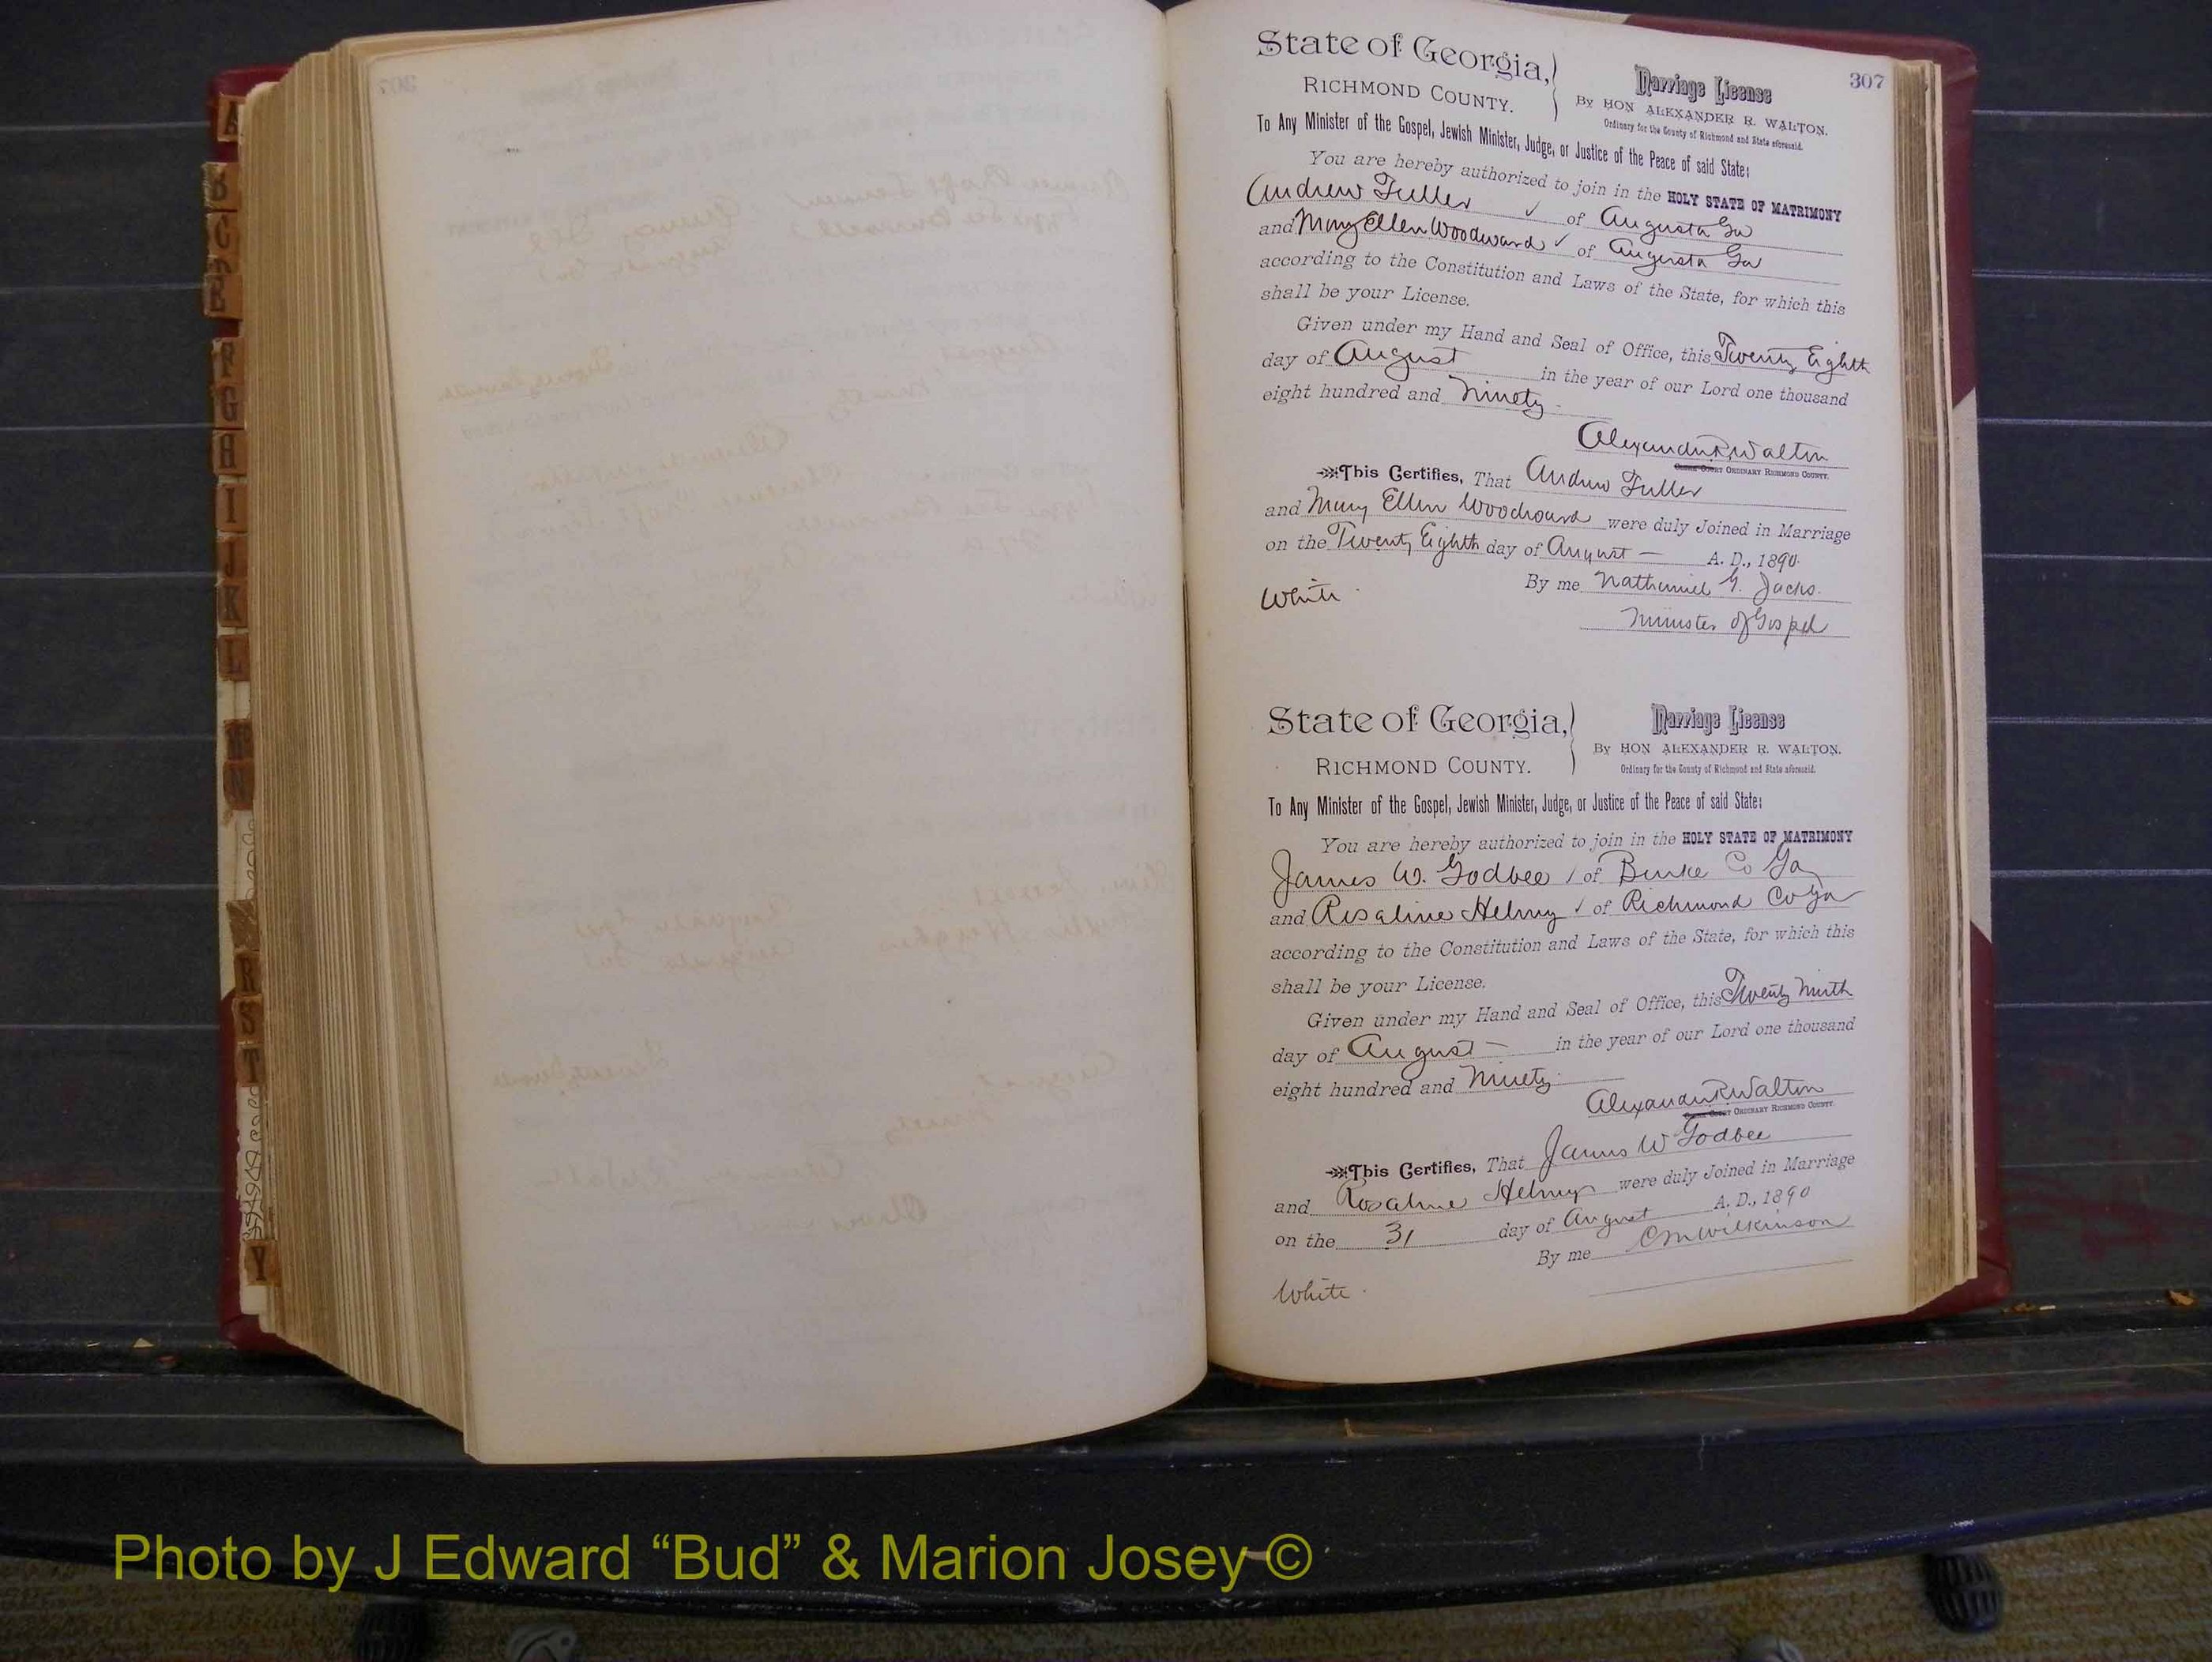 307
State of Georgia,
RICHMOND COUNTY.
Marriage License
By HON ALEXANDER R. WALTON.
Ordinary for the County of Richmond and State aforesaid.
To Any Minister of the Gospel, Jewish Minister, Judge, or Justice of the Peace of said State:
You are hereby authorized to join in the HOLY STATE OF MATRIMONY
Andrew Fuller ✓ of Augusta Ga
and Mary Ellen Woodward ✓ of Augusta Ga
according to the Constitution and Laws of the State, for which this
shall be your License.
Given under my Hand and Seal of Office, this Twenty Eighth
day of August in the year of our Lord one thousand
eight hundred and Ninety
Alexander R. Walton
ORDINARY RICHMOND COUNTY.
This Certifies, That Andrew Fuller
and Mary Ellen Woodward were duly Joined in Marriage
on the Twenty Eighth day of August — A. D., 1890.
By me Nathaniel
White.
Minister of Gospel
State of Georgia,
RICHMOND COUNTY.
Marriage License
By HON ALEXANDER R. WALTON.
Ordinary for the County of Richmond and State aforesaid.
To Any Minister of the Gospel, Jewish Minister, Judge, or Justice of the Peace of said State:
You are hereby authorized to join in the HOLY STATE OF MATRIMONY
James W. Godbee ✓ of Burke Co Ga
and Rosaline Helmy ✓ of Richmond Co Ga
according to the Constitution and Laws of the State, for which this
shall be your License.
Given under my Hand and Seal of Office, this Twenty Ninth
day of August — in the year of our Lord one thousand
eight hundred and Ninety
Alexander R. Walton
ORDINARY RICHMOND COUNTY.
This Certifies, That James W Godbee
and Rosaline Helmy were duly Joined in Marriage
on the 31 day of August A. D., 1890
By me C M Wilkinson
White.
A
B
C
E
F
G
H
I
J
K
L
N
R
S
T
Y
Photo by J Edward “Bud” & Marion Josey ©